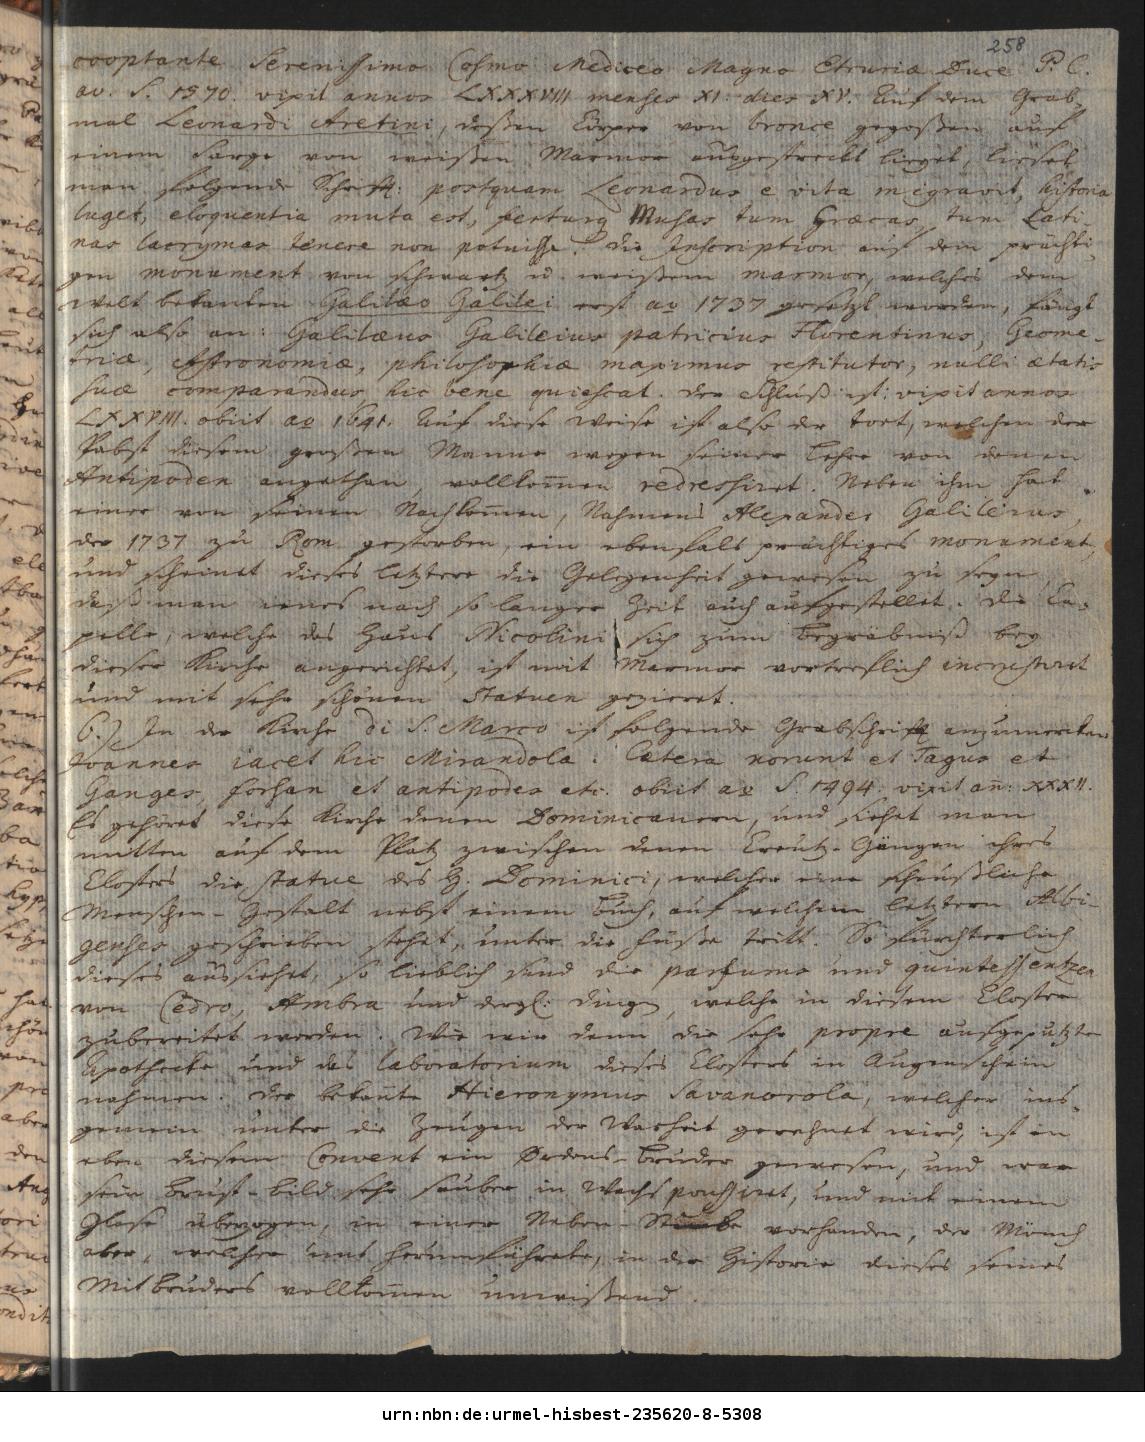 258
cooptante Serenissimo Cosmo Mediceo Magno Etruriæ Duce P. C.
ao. S. 1570. vixit annos LXXXVIII menses XI. dies XV. Auf dem Grab-
mal Leonardi Aretini, deßen Cörper von bronce gegoßen auf
einem Sarge von weißen Marmor ausgestreckt lieget, lieset
man folgende Schrifft: postquam Leonardus e vita migravit, historia
luget, eloquentia muta est, ferturq Musas tum Græcas, tum Lati-
nas lacrymas tenere non potuisse. Die Inscription auf dem prächti-
gen monument von schwartz u. weißem marmor, welches dem
Welt bekanten Galilæo Galilei erst ao 1737 gesetzt worden, fängt
sich also an: Galilæus Galileius patricius Florentinus, Geome-
triæ, Astronomiæ, philosophiæ maximus restitutor, nulli ætatis
suæ comparandus hic bene quiescat. der Schluß ist: vixit annos
LXXVIII. obiit ao 1641. Auf diese Weise ist also der tort, welchen der
Pabst diesem großen Manne wegen seiner Lehre von denen
Antipoden angethan, vollkom̄en redressiret. Neben ihm hat
einer von seinen Nachkom̄en, Nahmens Alexander Galileius,
der 1737 zu Rom gestorben, ein ebenfals prächtiges monument,
und scheinet dieses letztere die Gelegenheit gewesen zu seyn,
daß man jenes nach so langer Zeit auch aufgestellet. Die Ca-
pelle, welche das Haus Nicolini sich zum Begräbniß bey
dieser Kirche angerichtet, ist mit Marmor vortreflich incrustiret
und mit sehr schönen Statuen gezieret.
6.) In der Kirche di S. Marco ist folgende Grabschrifft anzumerken
Joannes iacet hic Mirandola: Cætera norunt et Tagus et
Ganges, forsan et antipodes etc. obiit ao S. 1494. vixit an̄: XXXII.
Es gehöret diese Kirche denen Dominicanern, und siehet man
mitten auf dem Platz zwischen denen Creutz-Gängen ihres
Closters die statue des H. Dominici, welcher eine scheußliche
Menschen-Gestalt nebst einem Buch, auf welchem letztern Albi-
genses geschrieben stehet, unter die Füße tritt. So fürchterlich
dieses aussiehet, so lieblich sind die parfums und quintessentzen
von Cedro, Ambra und dergl. Dinge, welche in diesem Closter
zubereitet werden. Wie wir denn die sehr propre aufgeputzte
Apothecke und das laboratorium dieses Closters in Augenschein
nahmen. Der bekan̄te Hieronymus Savanorola, welcher ins-
gemein unter die Zeugen der Warheit gerechnet wird, ist in
eben diesem Convent ein Ordens-Bruder gewesen, und war
sein Brust-Bild sehr sauber in Wachs poussiret, und mit einem
Glase überzogen, in einer Neben-Stube vorhanden, der Mönch
aber, welcher uns herumführete, in der Historie dieses seines
Mitbruders vollkom̄en unwißend.
urn:nbn:de:urmel-hisbest-235620-8-5308